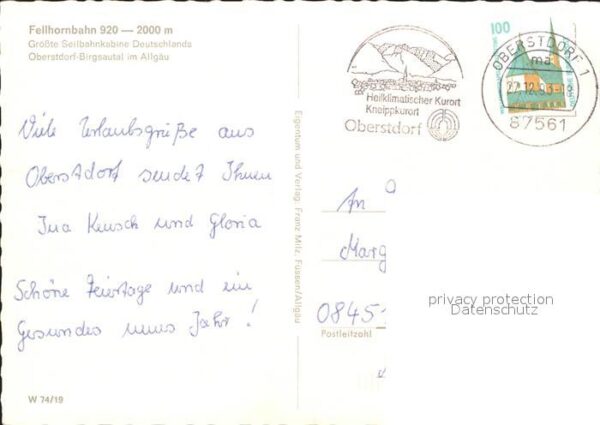 Fellhornbahn 920 — 2000 m
Größte Seilbahnkabine Deutschlands
Oberstdorf-Birgsautal im Allgäu
Viele Urlaubsgrüße aus
Oberstdorf sendet Ihnen
Ina Keusch und Gloria
Schöne Feiertage und ein
Gesundes neues Jahr!
W 74/19
Eigentum und Verlag: Franz Milz, Füssen/Allgäu
Heilklimatischer Kurort
Kneippkurort
Oberstdorf
100
OBERSTDORF 1
ma
27.12.93
87561
An
Marg
0845
Postleitzahl
privacy protection
Datenschutz